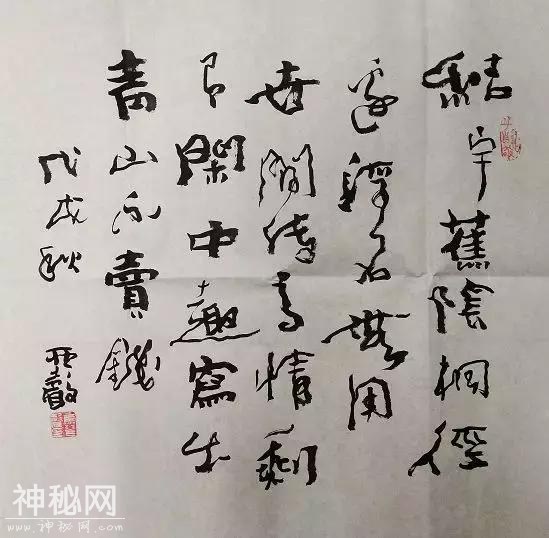 結宇蕉陰桐徑
邊浮名無用
世間傳高情剩
有閑中趣寫出
青山不賣錢
戊戌秋
神秘网
www.神秘网.com